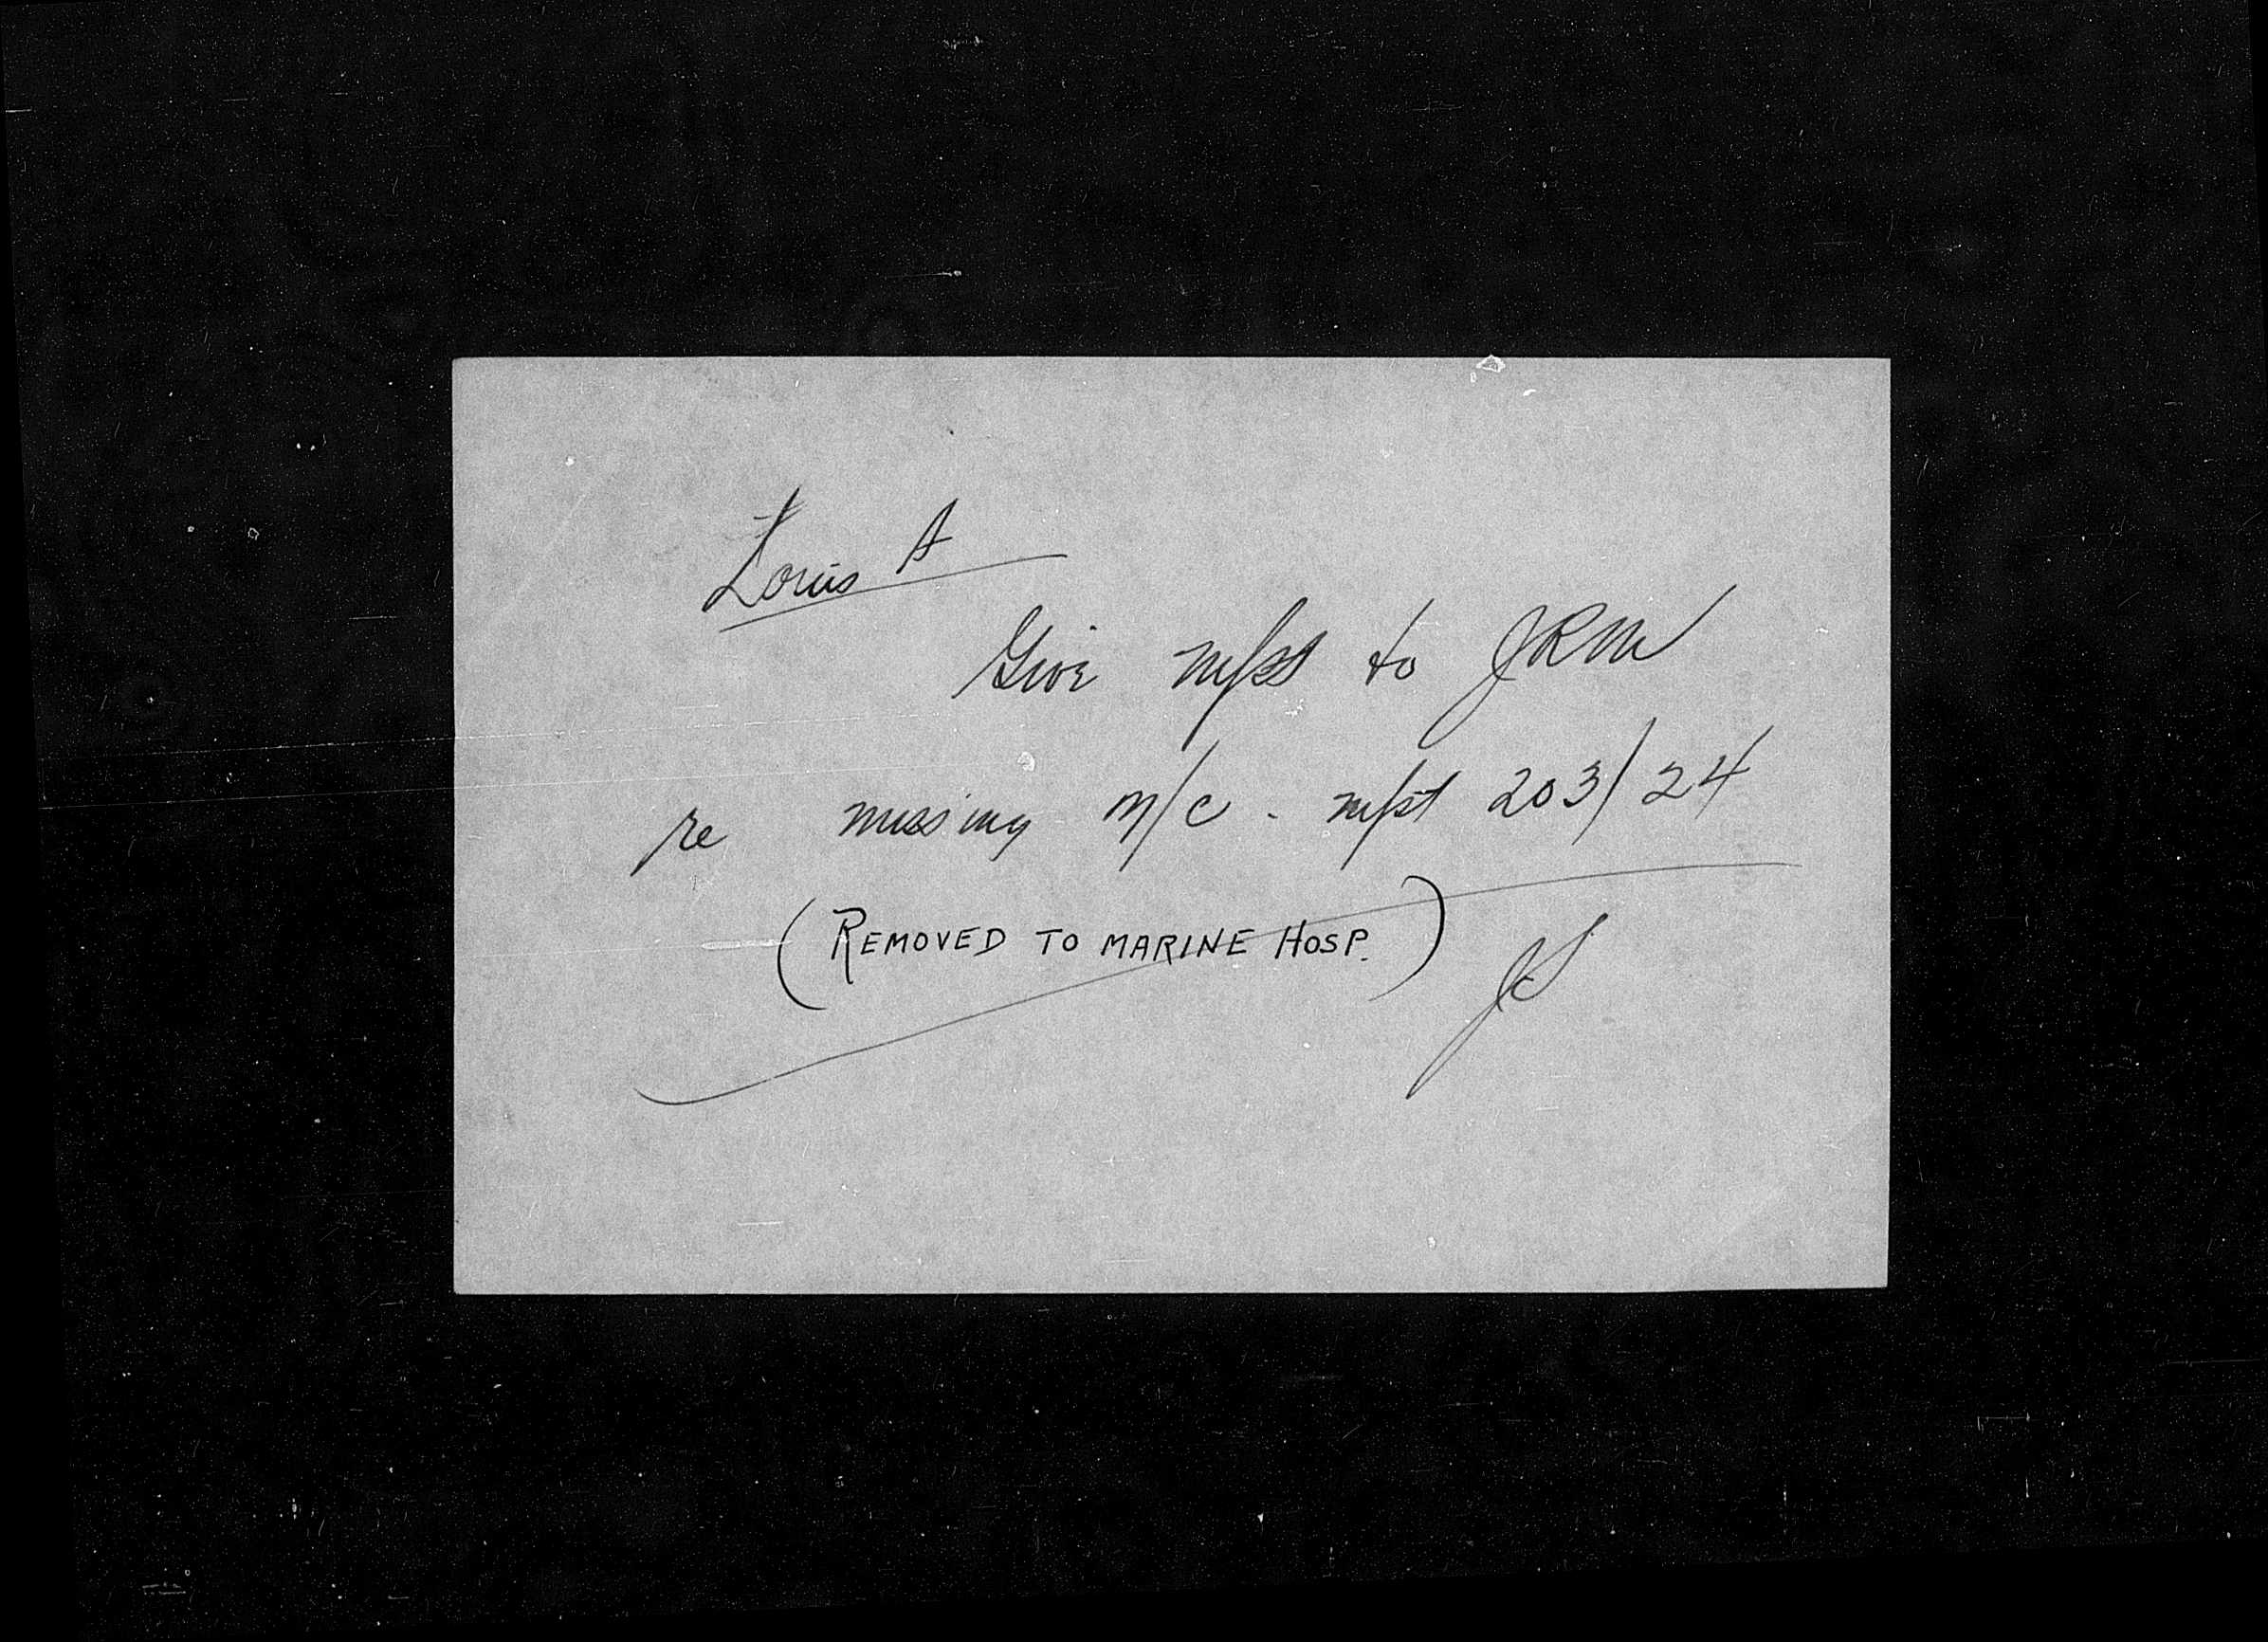 Louis A
Give mfst to JRM
re missing m/c - mfst 203/24
(REMOVED TO MARINE HOSP.)
JS